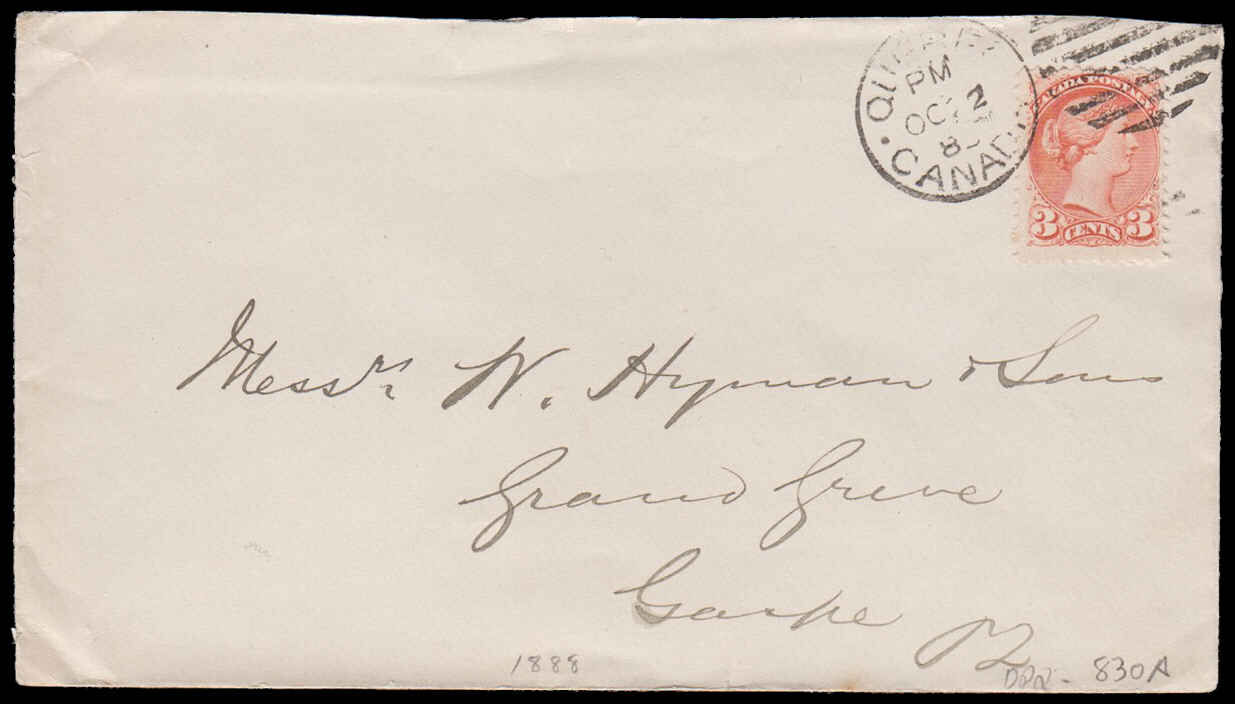 QUEBEC
PM
OC 2
8
CANADA
CANADA POSTAGE
3 CENTS 3
Messrs W. Hyman & Sons
Grand Greve
Gaspe
1888
830A